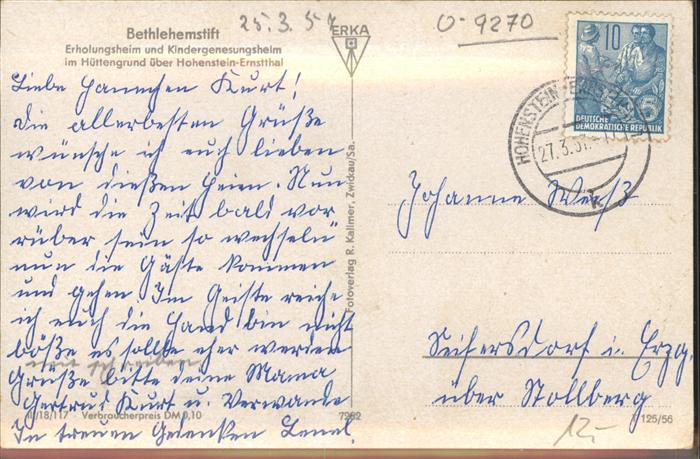 Bethlehemstift
Erholungsheim und Kindergenesungsheim
im Hüttengrund über Hohenstein-Ernstthal
25.3.57
ERKA
O-9270
10
5
DEUTSCHE
DEMOKRATISCHE REPUBLIK
HOHENSTEIN-ERNSTTHAL
27.3.57.
k
Liebe Hannchen Kurt!
die allerbesten Grüße
wünsche ich euch lieben
von dießen Heim. Nun
wird die Zeit bald vor
rüber sein so wechseln
nun die Gäste kommen
und gehen. Im Geiste reiche
ich euch die Hand bin nicht
böße es sollte eher werden
mit schreiben
Grüße bitte deine Mama
Gertrud Kurt u. Verwande
In treuen Gedenken
Johanne Weiß
Seifersdorf i. Erzg.
über Stollberg
Fotoverlag R. Kallmer, Zwickau/Sa.
III/18/117 Verbraucherpreis DM 0,10
7282
T 125/56
12,-